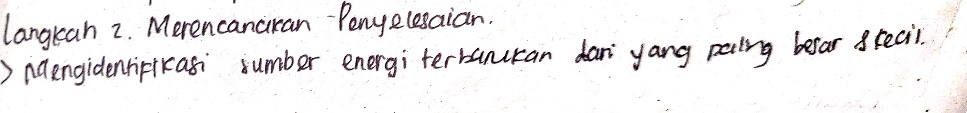 Langkah 2. Merencanakan Penyelesaian.
> Mengidentifikasi sumber energi terbarukan dari yang paling besar & kecil.